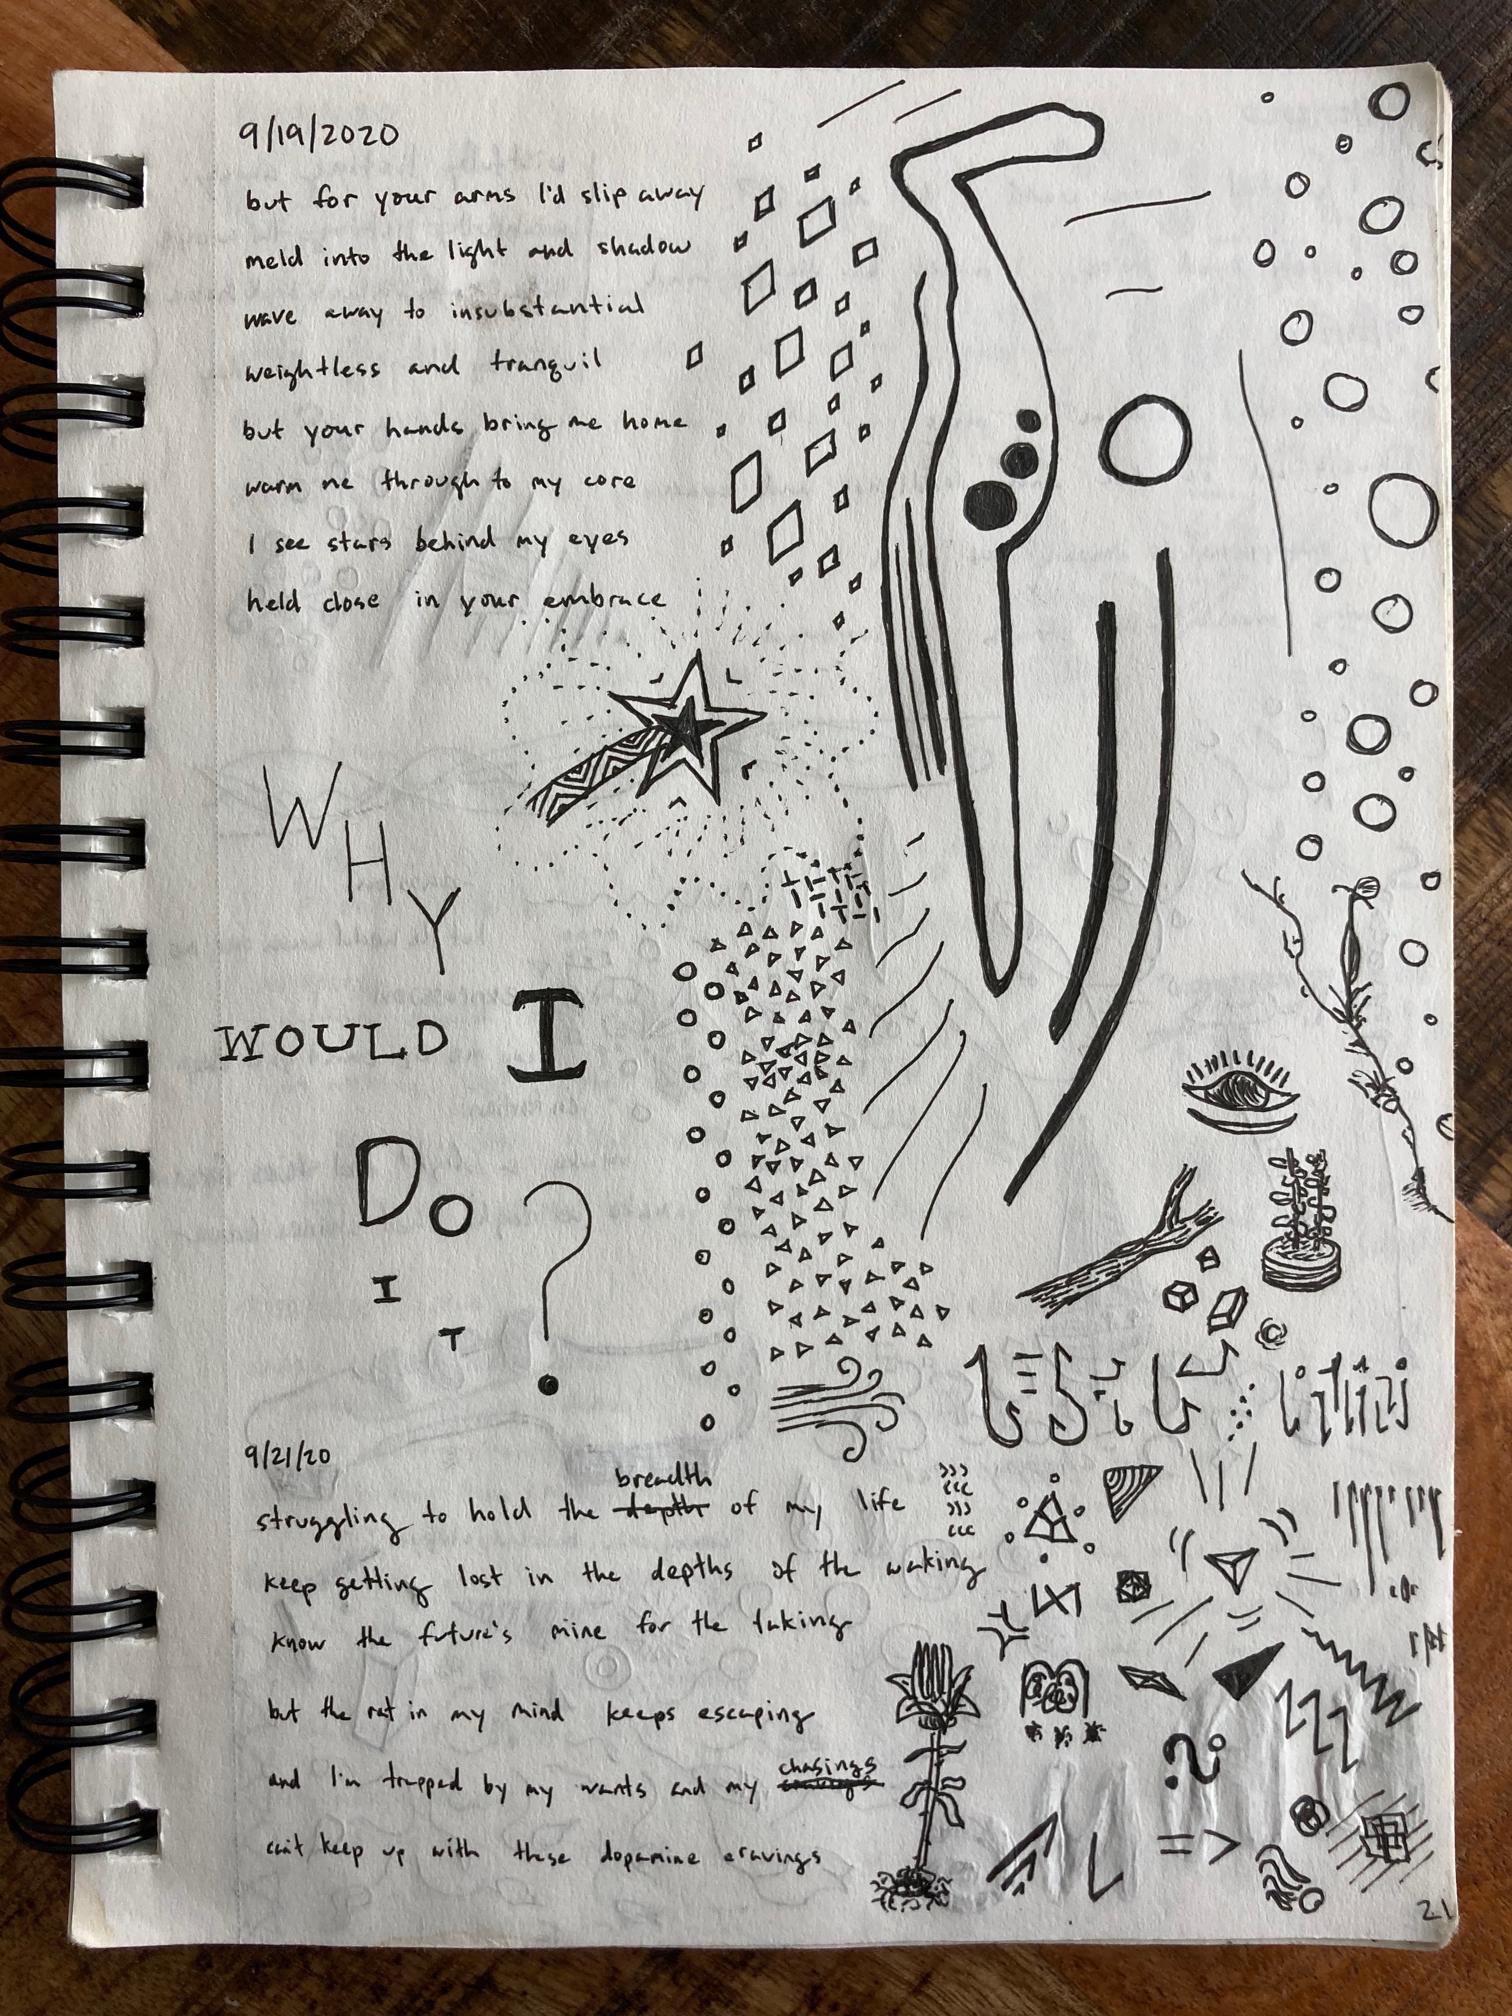 9/19/2020
but for your arms I'd slip away
meld into the light and shadow
wave away to insubstantial
weightless and tranquil
but your hands bring me home
warm me through to my core
I see stars behind my eyes
held close in your embrace
WHY
WOULD I
DO
IT ?
9/21/20
breadth
struggling to hold the depth of my life
keep getting lost in the depths of the waking
know the future's mine for the taking
but the rat in my mind keeps escaping
chasings
and I'm trapped by my wants and my cravings
can't keep up with these dopamine cravings
21